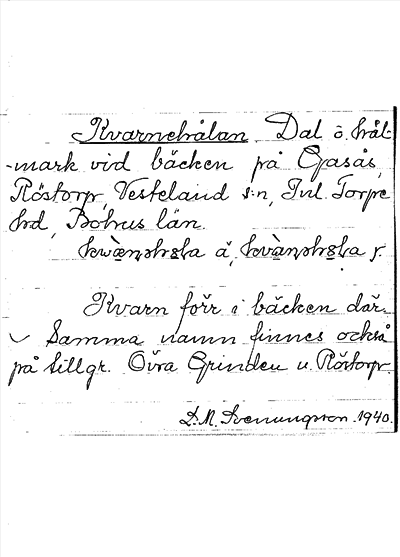 Kvarnehålan, Dal o. hål-
-mark vid bäcken på Gasås,
Röstorp, Vesteland s:n, Inl. Torpe
hrd, Bohus län.
Kvarn förr i bäcken där.
Samma namn finnes också
på tillgr. Övra Grinden u. Röstorp.
D. M. Svenungsson. 1940.